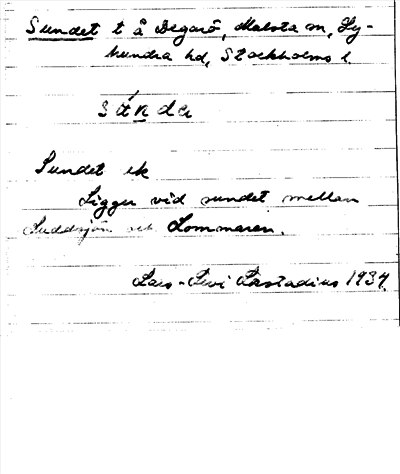 Sundet t å Degarö, Malsta sn, Ly-
hundra hd, Stockholms l.
Sundet ek
Ligger vid sundet mellan
och Lommaren.
Lars-Levi Læstadius 1934.